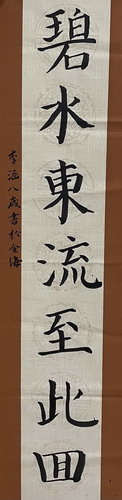 碧水東流至此回
李涵八歲書於金海